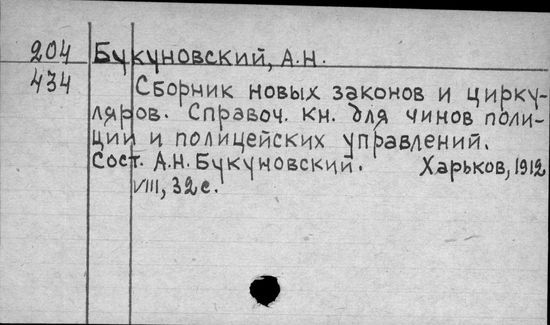 204 Букуновский, А.Н.
434 Сборник новых законов и цирку-
ляров. Справоч. кн. для чинов поли-
ции и полицейских управлений.
Сост. А.Н. Букуновский. Харьков, 1912
VIII, 32 с.